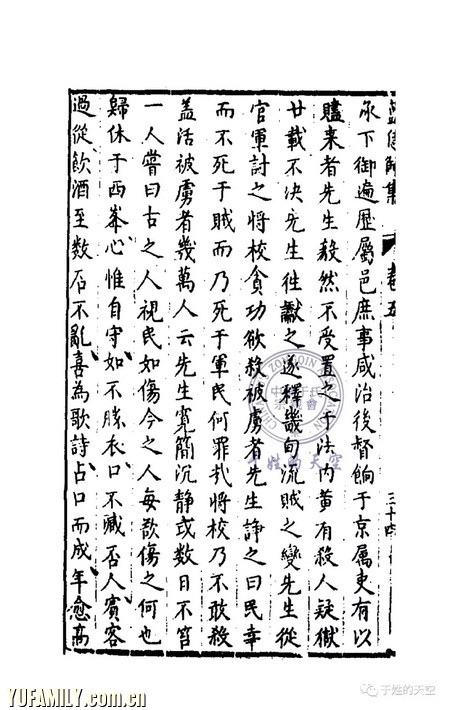 集 卷五 三十四
承下御遍歷屬邑庶事咸治後督餉于京属吏有以
贐来者先生毅然不受置之于法内黄有殺人疑獄
廿載不决先生徃讞之遂釋幾旬流賊之變先生從
官軍討之将校貪功欲殺被虜者先生諍之曰民幸
而不死于賊而乃死于軍民何罪㢤将校乃不敢殺
盖活被虜者幾萬人云先生寛簡沉静或数日不笞
一人嘗曰古之人視民如傷今之人每欲傷之何也
歸休于西峯心惟自守如不勝衣口不臧否人賓客
過從飲酒至数卮不亂喜為歌詩占口而成年愈高
于姓的天空
YUFAMILY.com.cn
于姓的天空